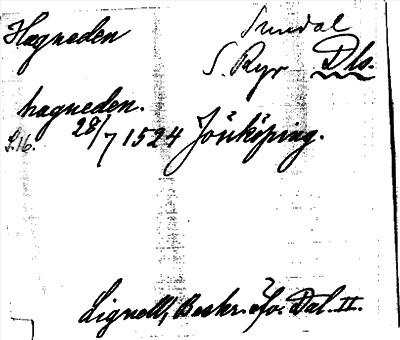 Hagneden
Sundal
S. Ryr Dls.
hagneden.
S. 16. 28/7 1524 Jönköping.
Lignell, Beskr. öfv. Dal. II.